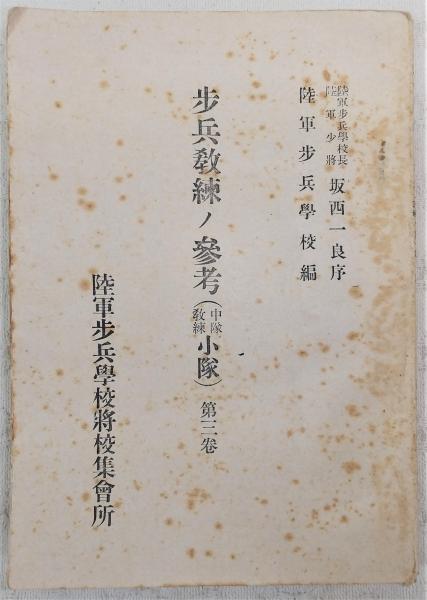 陸軍步兵學校長
陸軍少將
坂西一良序
陸軍步兵學校編
步兵教練ノ參考(中隊教練小隊)第三卷
陸軍步兵學校將校集會所